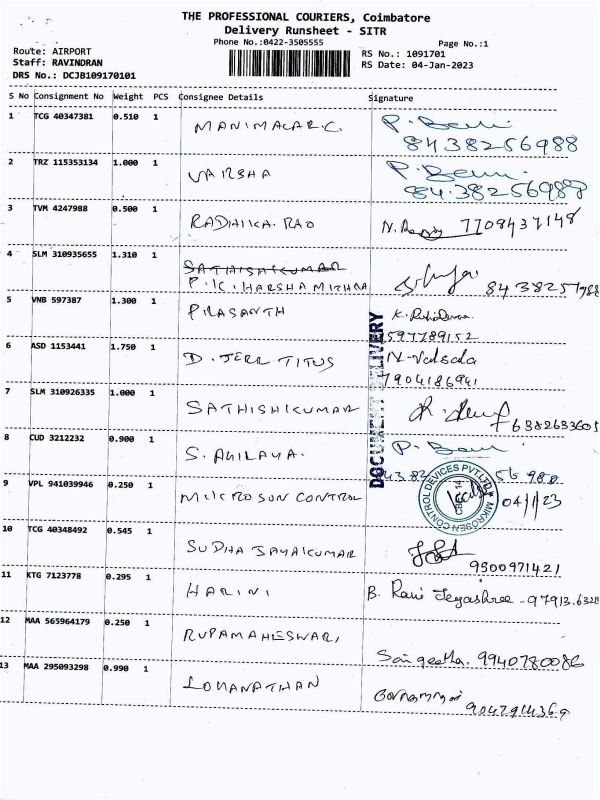 THE PROFESSIONAL COURIERS, Coimbatore
Delivery Runsheet - SITR
Phone No.:0422-3505555
Page No.:1
Route: AIRPORT
RS No.: 1091701
Staff: RAVINDRAN
RS Date: 04-Jan-2023
DRS No.: DCJB109170101
S No Consignment No Weight PCS Consignee Details Signature
1 TCG 40347381 0.510 1 MANIMALAR.C.
8438256988
2 TRZ 115353134 1.000 1 VARSHA
8438256988
3 TVM 4247988 0.500 1 RADHIKA.RAO 7708437148
4 SLM 310935655 1.310 1 SATHISHKUMAR
P.K.HARSHA MITHRA
5 VNB 597387 1.300 1 PRASANTH
9597789152
6 ASD 1153441 1.750 1 D. JERR TITUS N-Valsala
7904186941
7 SLM 310926335 1.000 1 SATHISHKUMAR
6382633605
8 CUD 3212232 0.900 1 S. AHILAYA.
DOCUMENT DELIVERY
9 VPL 941039946 0.250 1 MIICROSON CONTROL 04/1/23
MIKROSEN CONTROL DEVICES PVT LTD
CBE-14
10 TCG 40348492 0.545 1 SUDHA JAYAKUMAR
9500971421
11 KTG 7123778 0.295 1 HARINI B.
12 MAA 565964179 0.250 1 RUPAMAHESWARI
Sangeetha. 9940780086
13 MAA 295093298 0.990 1 LOGANATHAN
9042914369